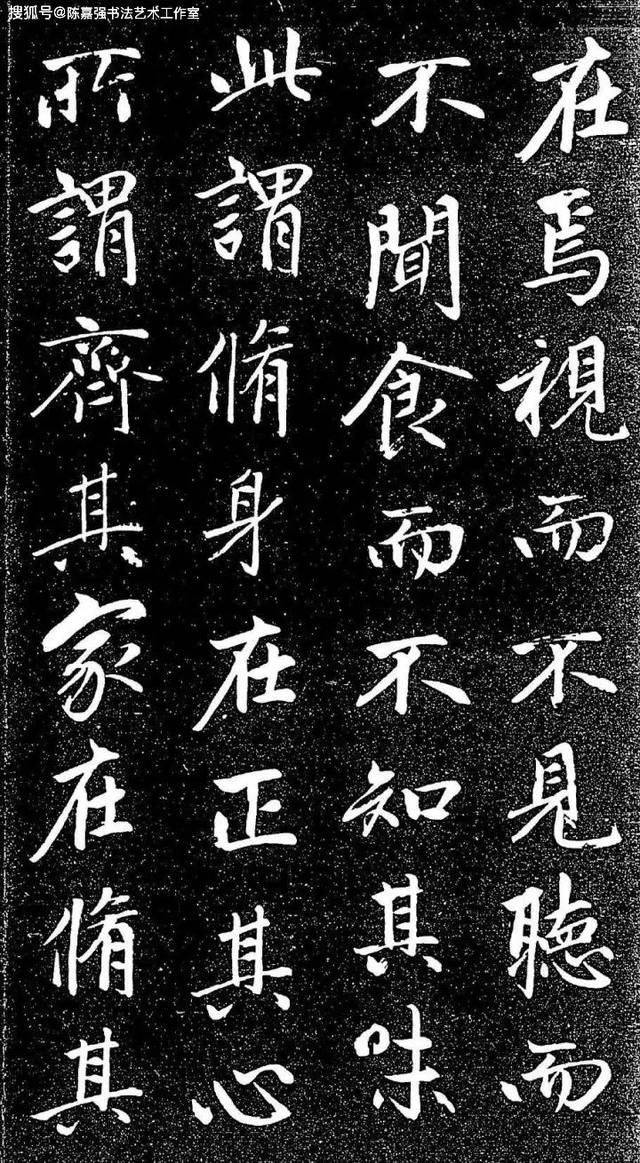 搜狐号@陈嘉强书法艺术工作室
在焉視而不見聽而
不聞食而不知其味
此謂脩身在正其心
所謂齊其家在脩其